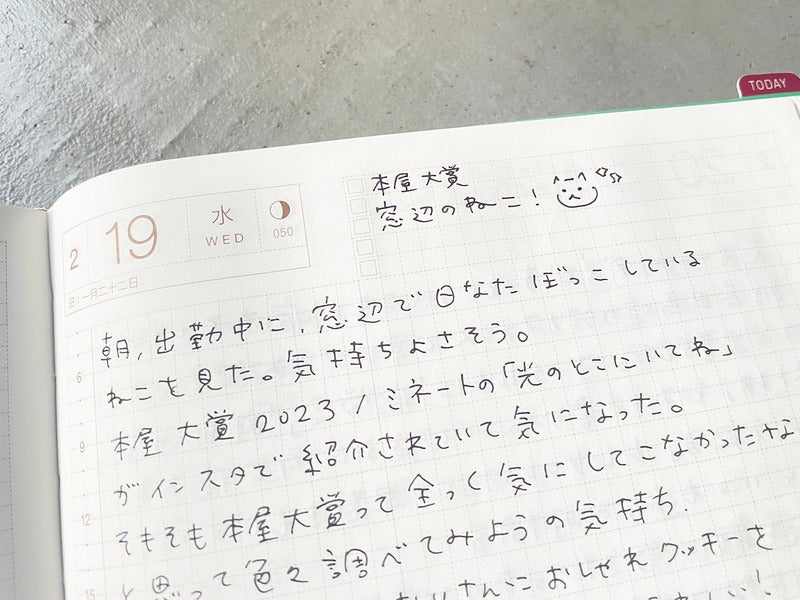 TODAY
2 19 水 WED 050
旧：一月二十二日
本屋大賞
窓辺のねこ！
朝、出勤中に、窓辺で日なたぼっこしている
ねこを見た。気持ちよさそう。
本屋大賞2023ノミネートの「光のとこにいてね」
がインスタで紹介されていて気になった。
そもそも本屋大賞って全っく気にしてこなかったな
と思って色々調べてみようの気持ち。
さんにおしゃれクッキーを
6
9
12
15